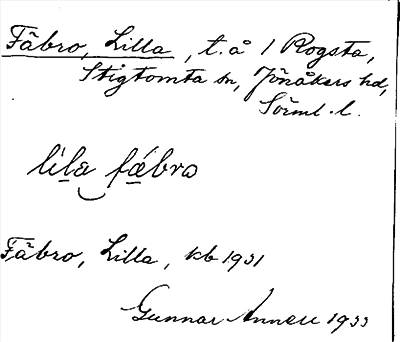 Fäbro, Lilla, t.å 1 Rogsta,
Stigtomta sn, Jönåkers hd,
Sörml. l.
lila fäbro
Fäbro, Lilla, kb 1931
Gunnar Annell 1933